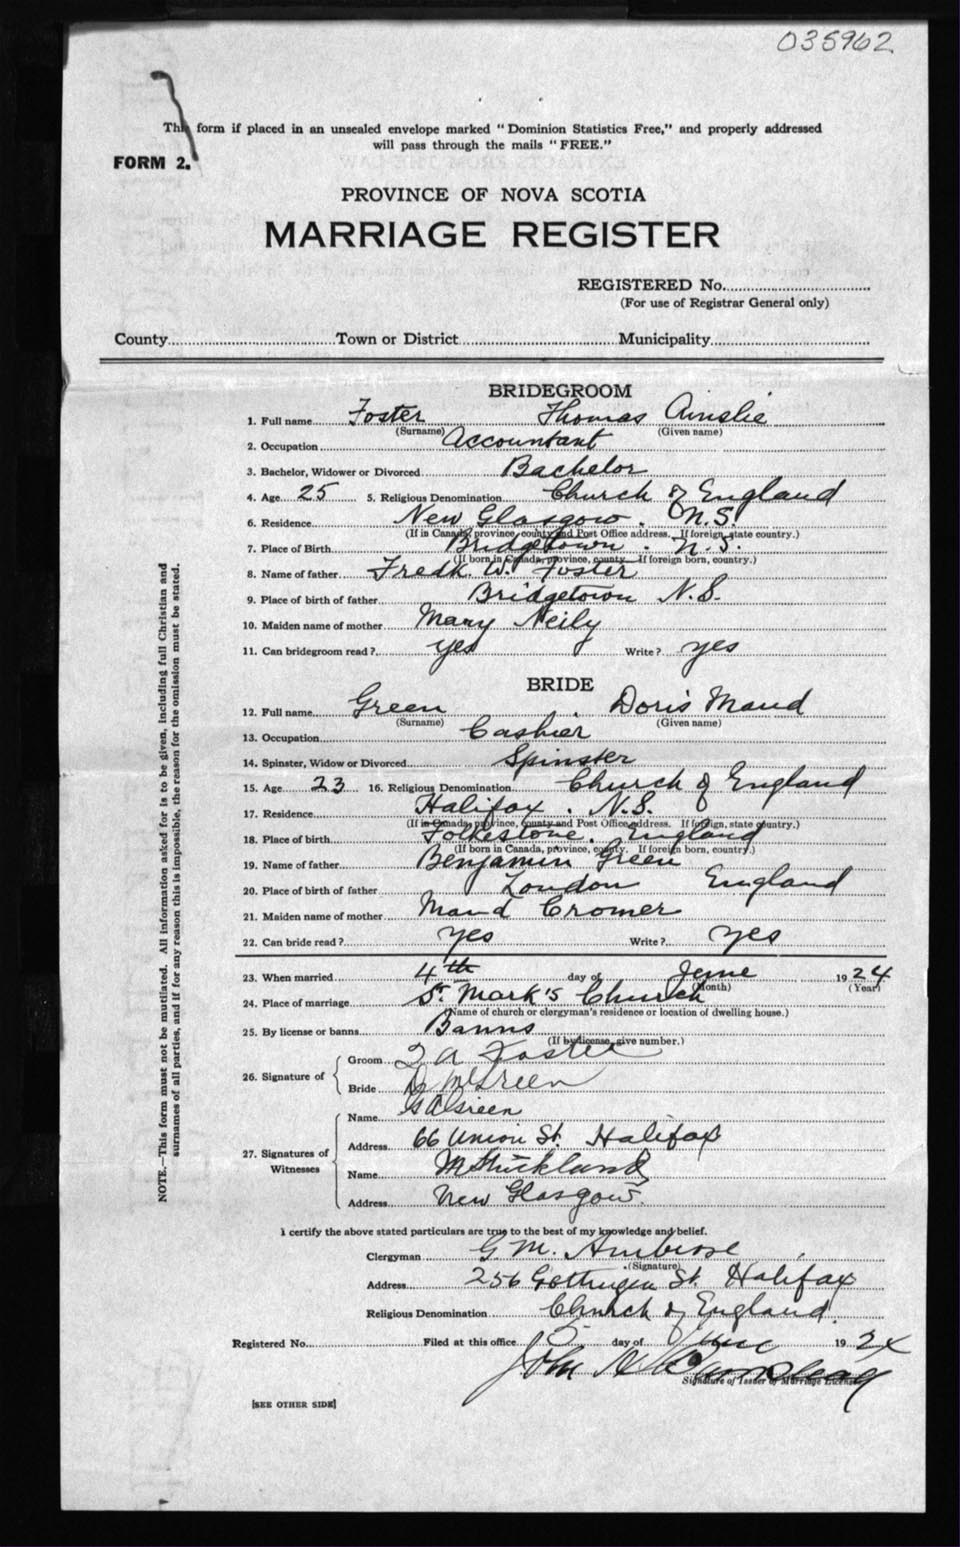 035962
This form if placed in an unsealed envelope marked "Dominion Statistics Free," and properly addressed
will pass through the mails "FREE."
FORM 2.
PROVINCE OF NOVA SCOTIA
MARRIAGE REGISTER
REGISTERED No.
(For use of Registrar General only)
County Town or District Municipality
BRIDEGROOM
1. Full name Foster Thomas Ainslie
(Surname) (Given name)
2. Occupation Accountant
3. Bachelor, Widower or Divorced Bachelor
4. Age 25 5. Religious Denomination Church of England
6. Residence New Glasgow. N.S.
(If in Canada, province, county and Post Office address. If foreign, state country.)
7. Place of Birth Bridgetown. N.S.
(If born in Canada, province, county. If foreign born, country.)
8. Name of father Fredk. W. Foster
9. Place of birth of father Bridgetown N.S.
10. Maiden name of mother Mary Neily
11. Can bridegroom read? yes Write? yes
BRIDE
12. Full name Green Doris Maud
(Surname) (Given name)
13. Occupation Cashier
14. Spinster, Widow or Divorced Spinster
15. Age 23 16. Religious Denomination Church of England
17. Residence Halifax. N.S.
(If in Canada, province, county and Post Office address. If foreign, state country.)
18. Place of birth Folkestone. England
(If born in Canada, province, county. If foreign born, country.)
19. Name of father Benjamin Green
20. Place of birth of father London England
21. Maiden name of mother Maud Cromer
22. Can bride read? yes Write? yes
23. When married 4th day of June 1924
(Month) (Year)
24. Place of marriage St. Mark's Church
(Name of church or clergyman's residence or location of dwelling house.)
25. By license or banns Banns
(If by license, give number.)
26. Signature of Groom T A Foster
Bride D M Green
27. Signatures of Witnesses Name G A Green
Address 66 Union St. Halifax
Name M Strickland
Address New Glasgow.
I certify the above stated particulars are true to the best of my knowledge and belief.
Clergyman G. M. Ambrose
(Signature)
Address 256 Gottingen St. Halifax
Religious Denomination Church of England.
Registered No. Filed at this office 5 day of June 1924
John
Signature of Issuer of Marriage Licenses
[SEE OTHER SIDE]
NOTE.—This form must not be mutilated. All information asked for is to be given, including full Christian and
surnames of all parties, and if for any reason this is impossible, the reason for the omission must be stated.